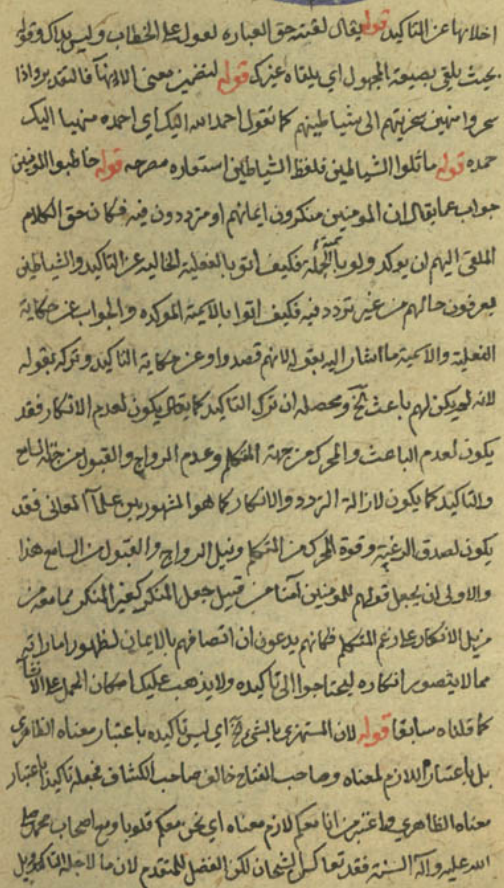 اخلائها عن التاكيد قوله يقال لقيته حق العباره لعول على الخطاب وليس بذاك وقوله
بحيث يلقى بصيغة المجهول اي يلقاه غيرك قوله لتضمين معنى الانهآ فالتقدير واذا
سخروا منهين سخريتهم الى شياطينهم كما تقول احمد الله اليك اي احمده منهيا اليك
حمده قوله ما تلوا الشياطين فلفظ الشياطين استعاره مصرحه قوله خاطبوا المؤمنين
جواب عما يقال ان المومنين منكرون ايمانهم او مترددون فيه فكان حق الكلام
الملقى اليهم ان يوكد ولو بالجملة فكيف اتوا بالفعلية الخاليه عن التاكيد والشياطين
يعرفون حالهم من غير تردد فيه فكيف اتوا بالاسمية الموكده والجواب عن حكاية
الفعلية والاسمية ما اشار اليه بقوله لانهم قصدوا وعن حكاية التاكيد وتركه بقوله
لانه لم يكن لهم باعث الخ ومحصله ان ترك التاكيد كما يكون لعدم الانكار فقد
يكون لعدم الباعث والمحرك من جهة المتكلم وعدم الرواج والقبول من جهة السامع
والتاكيد كما يكون لازالة التردد والانكار كما هو المشهور بين علمآ المعاني فقد
يكون لصدق الرغبة وقوة المحرك من المتكلم ونيل الرواج والقبول من السامع هذا
والاولى ان يجعل قولهم للمومنين آمنا من قبيل جعل المنكر كغير المنكر لما معه من
مزيل الانكار على زعم المتكلم فكانهم يدعون ان اتصافهم بالايمان لظهور اماراته
مما لا يتصور انكاره ليحتاجوا الى تاكيده ولا يذهب عليك امكان الحمل على الانشا
كما قلناه سابقا قوله لان المستهزى بالشى الخ اي ليس تاكيده باعتبار معناه الظاهري
بل باعتبار اللازم لمعناه وصاحب المفتاح خالف صاحب الكشاف فجعله تاكيدا باعتبار
معناه الظاهري واعتبر من انا معكم لازم معناه اي نحن معكم قلوبا ومع اصحاب محمد صلى
الله عليه وآله السنة فقد تعاكس الشيخان لكن الفضل للمتقدم لان ما لاجله التاكيد